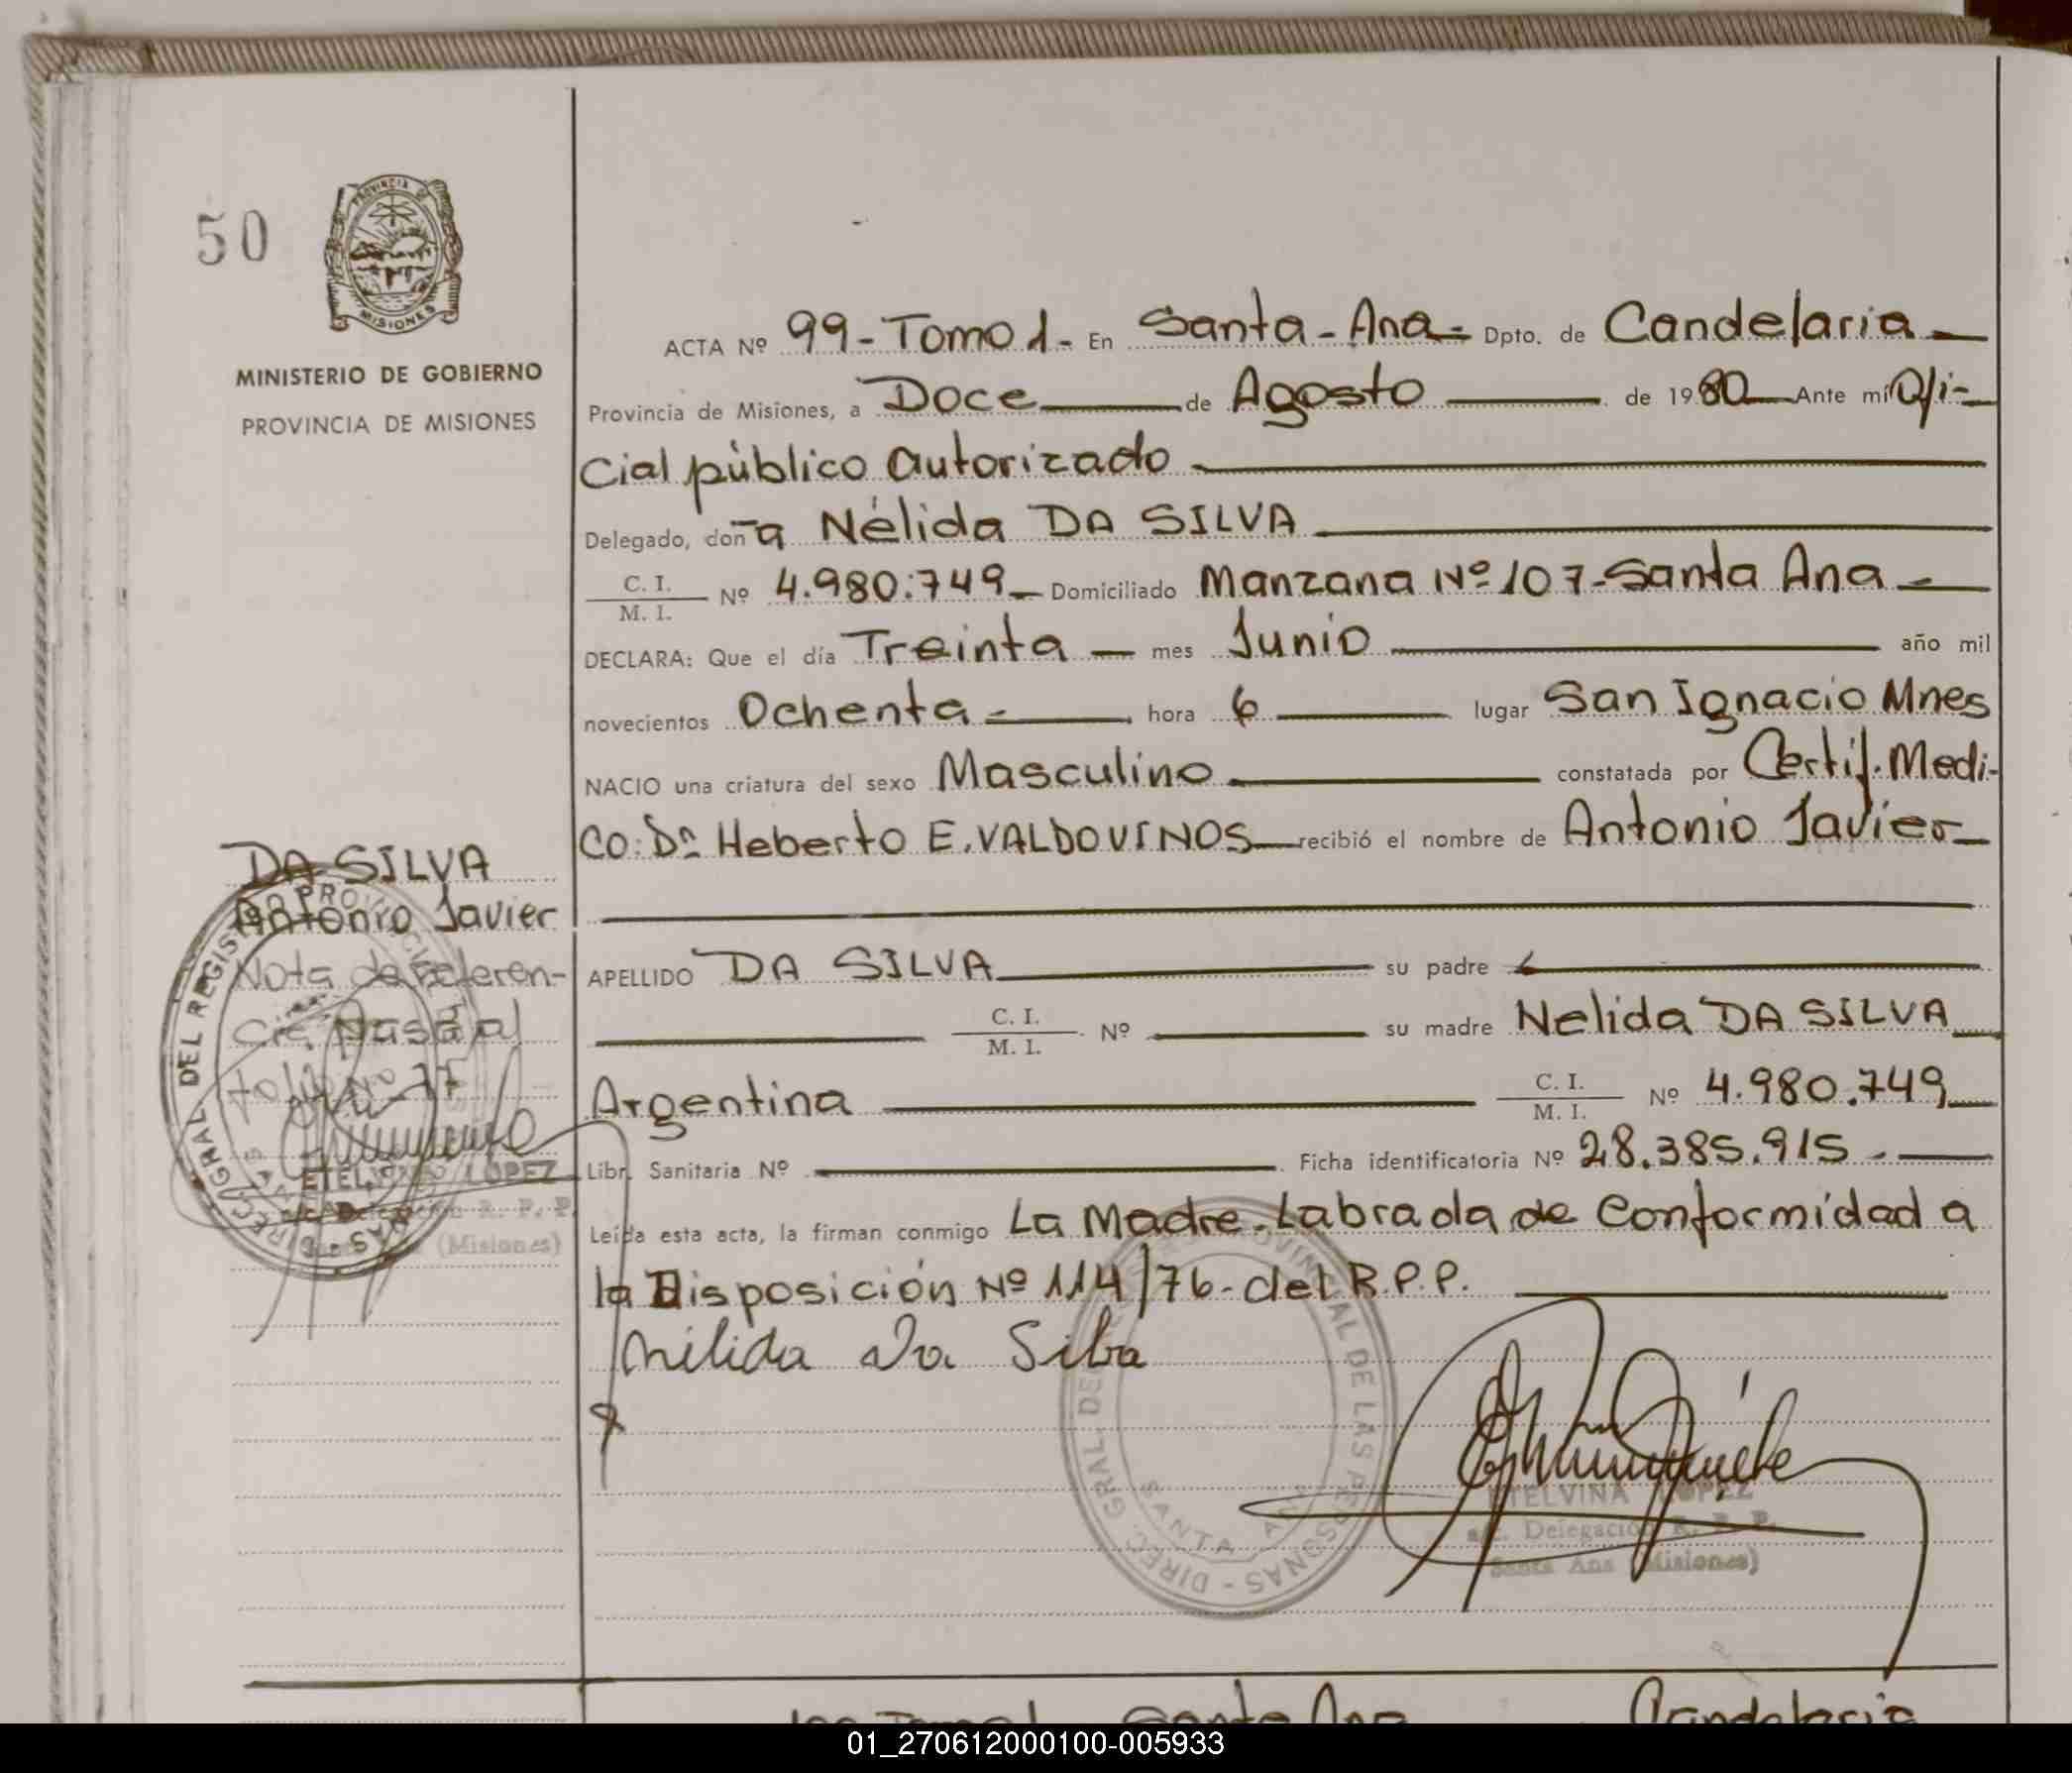 50
PROVINCIA DE
MISIONES
MINISTERIO DE GOBIERNO
PROVINCIA DE MISIONES
ACTA Nº 99-Tomo 1- En Santa-Ana- Dpto. de Candelaria
Provincia de Misiones, a Doce de Agosto de 1980 Ante mi Ofi-
cial público autorizado
Delegado, doña Nélida DA SILVA
C. I. / M. I. Nº 4.980.749 Domiciliado Manzana Nº 107-Santa Ana
DECLARA: Que el día Treinta mes Junio año mil
novecientos Ochenta hora 6 lugar San Ignacio Mnes
NACIO una criatura del sexo Masculino constatada por Certif. Medi-
co: Dr Heberto E. VALDOVINOS recibió el nombre de Antonio Javier
DA SILVA
Antonio Javier
Nota de Referen-
cia
ETELVINA LOPEZ
Delegación R. P. P.
(Misiones)
DIREC. GRAL. DEL REGISTRO PROVINCIAL
APELLIDO DA SILVA su padre
C. I. / M. I. Nº su madre Nelida DA SILVA
Argentina C. I. / M. I. Nº 4.980.749
Libr. Sanitaria Nº Ficha identificatoria Nº 28.385.915
Leída esta acta, la firman conmigo La Madre-Labrada de Conformidad a
la Disposición Nº 114/76-del R.P.P.
Nélida Da Silva
DIREC. GRAL. DEL PROVINCIAL DE LAS PERSONAS - SANTA ANA
ETELVINA LOPEZ
a/c. Delegación R. P. P.
Santa Ana (Misiones)
Santa Ana Candelaria
01_270612000100-005933